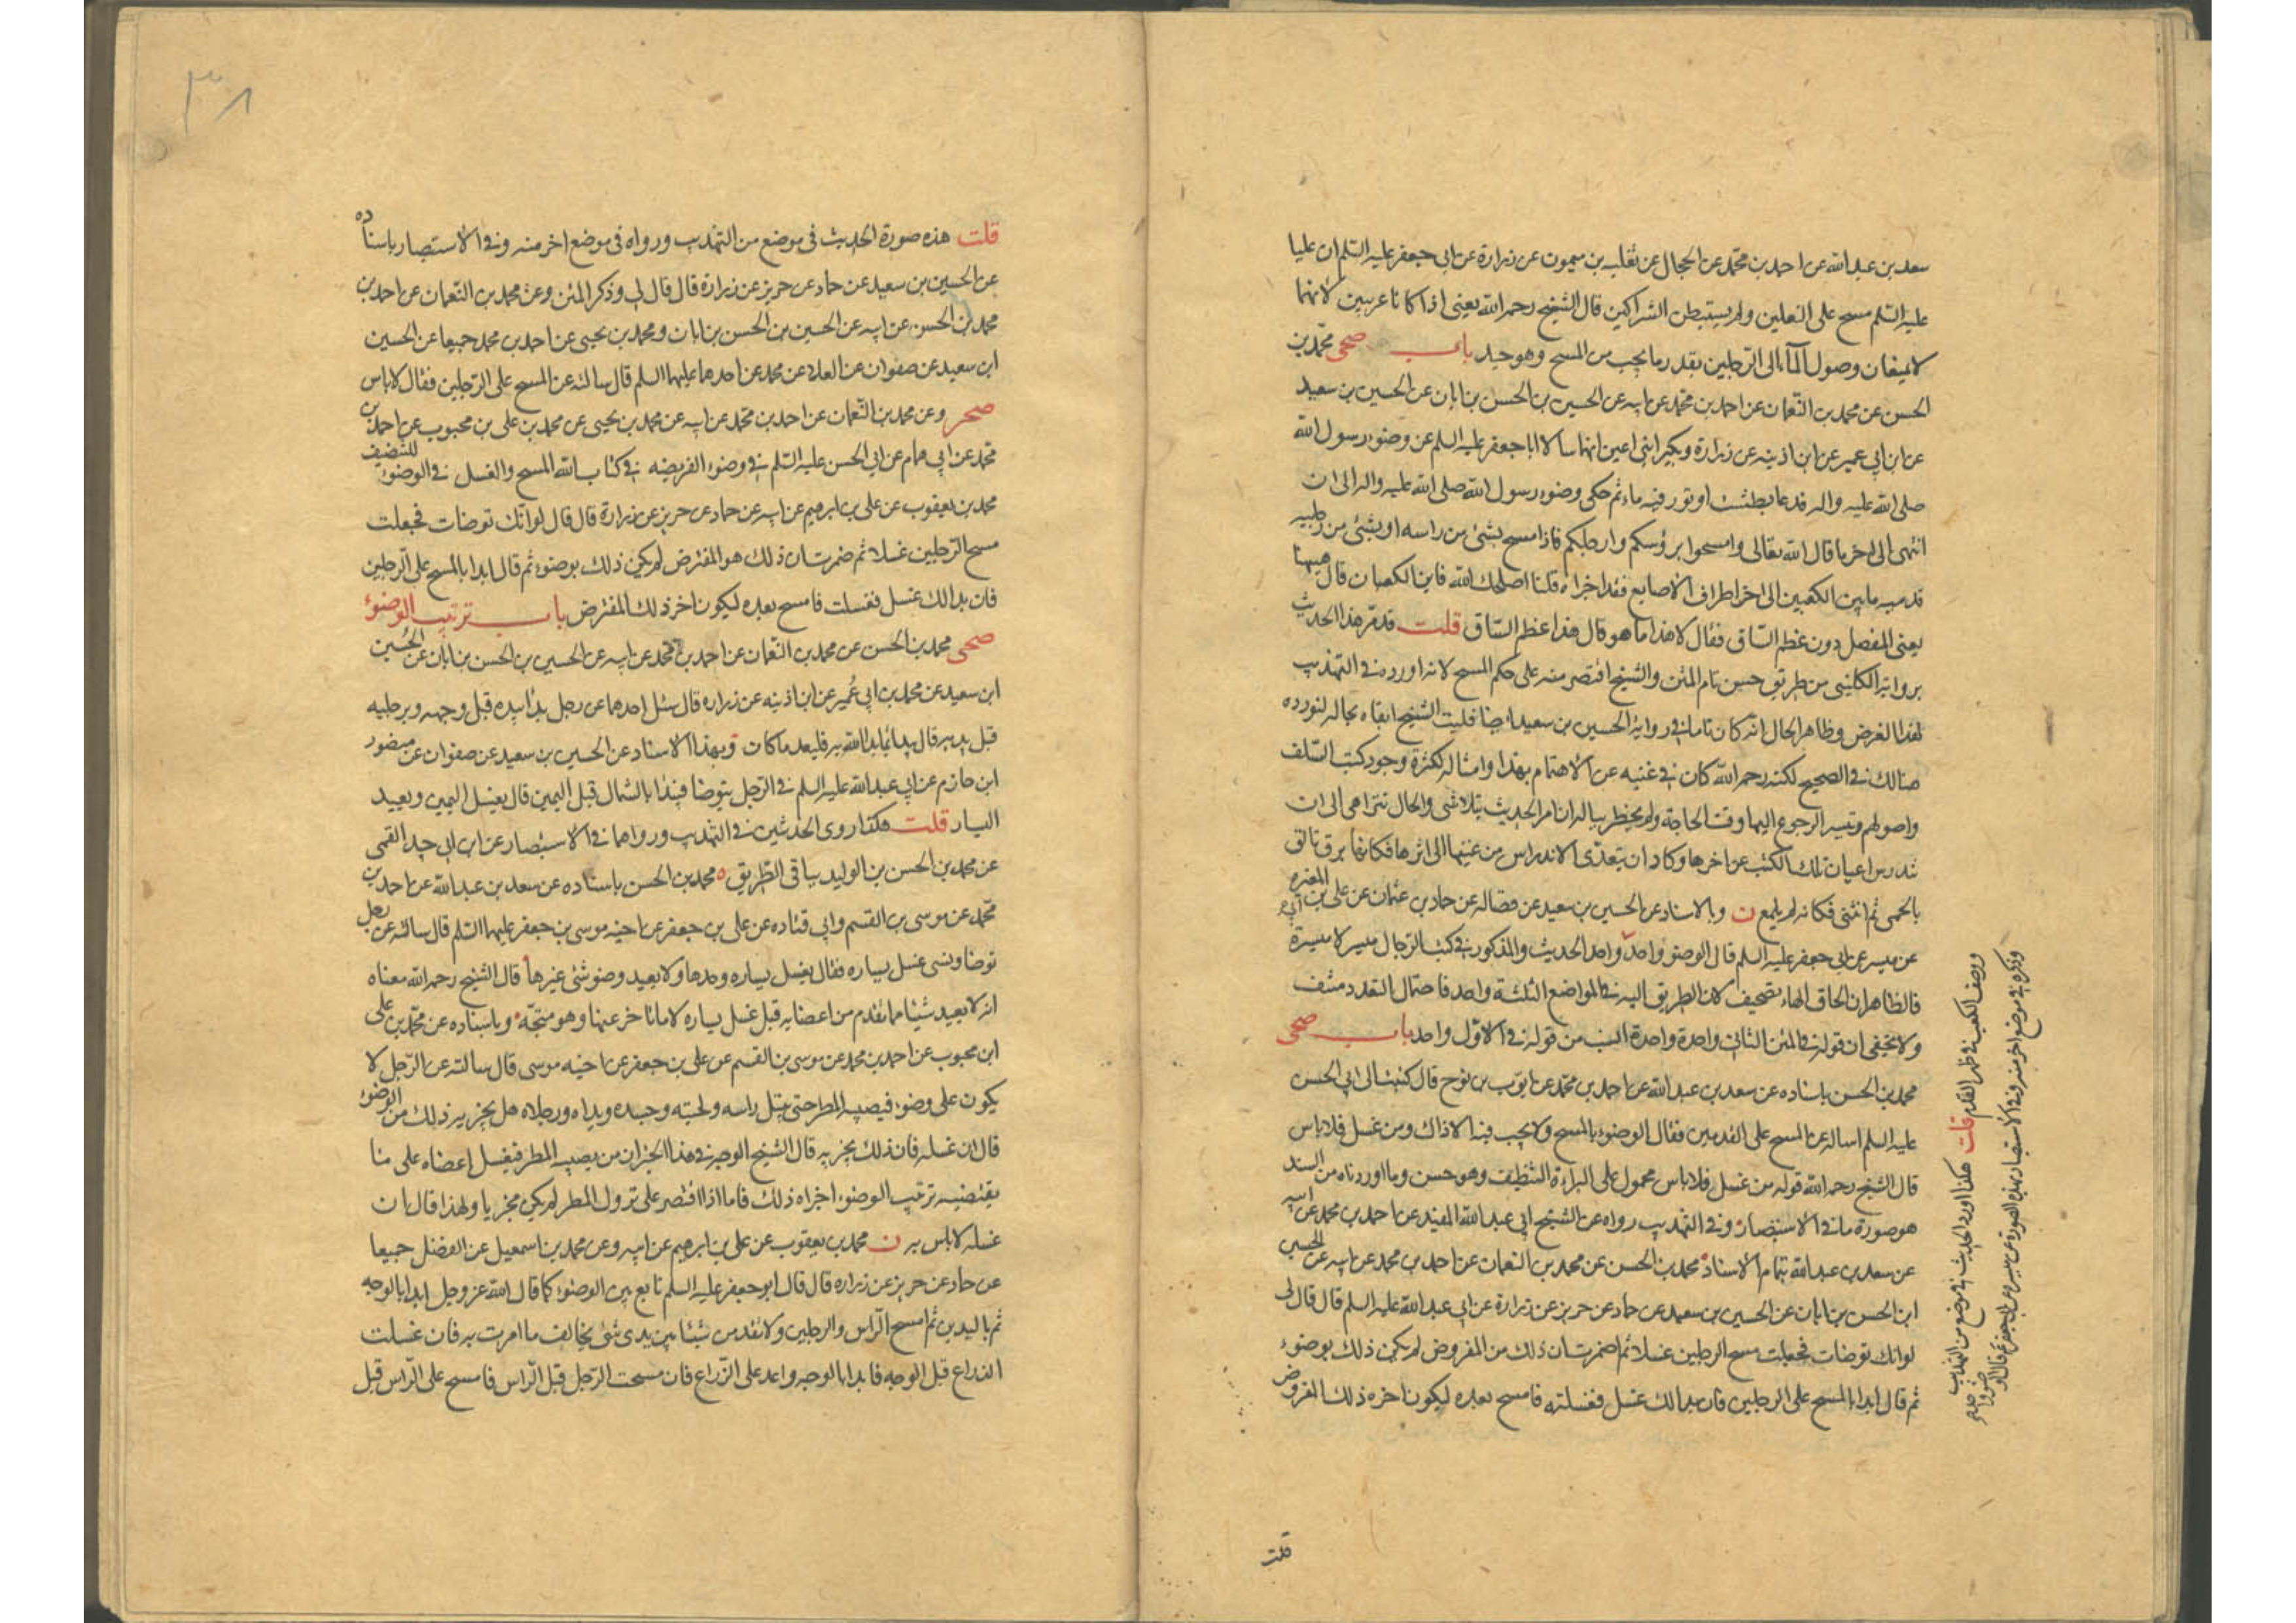 سعد بن عبدالله عن احمد بن محمّد عن الحجال عن ثعلبه بن ميمون عن زرارة عن ابى جعفر عليه السّلم ان عليا
عليه السّلم مسح على النعلين ولم يستبطن الشراكين قال الشيخ رحمه الله يعنى اذا كانا عربيين لانهما
لا يمنعان وصول المآء الى الرّجلين بقدر ما يجب من المسح وهو جيد باب صحى محمّد بن
الحسن عن محمد بن النعمان عن احمد بن محمّد عن ابيه عن الحسين بن الحسن بن ابان عن الحسين بن سعيد
عن ابن ابي عمير عن ابن اذينه عن زرارة وبكير ابنى اعين انهما سالا ابا جعفر عليه السلم عن وضوء رسول الله
صلى الله عليه واله فدعا بطشت او تور فيه ماء ثم حكى وضوء رسول الله صلى الله عليه واله الى ان
انتهى الى اخر ما قال الله تعالى وامسحوا برؤسكم وارجلكم فاذا مسح بشئ من راسه او بشئ من رجليه
قدميه ما بين الكعبين الى اخر اطراف الاصابع فقد اجزاه قلنا اصلحك الله فاين الكعبان قال هيهنا
يعنى المفصل دون عظم السّاق فقال لا هذا ما هو قال هذا عظم السّاق قلت قد مرّ هذا الحديث
برواية الكلينى من طريق حسن تام المتن والشيخ اقتصر منه على حكم المسح لانه اورده في التهذيب
لهذا الغرض وظاهر الحال انه كان تاما في رواية الحسين بن سعيد ايضا فليت الشيخ ابقاه بحاله لنورده
هنالك في الصحيح لكنه رحمه الله كان في غنيه عن الاهتمام بهذا وامثاله لكثرة وجود كتب السّلف
واصولهم وتيسر الرجوع اليها وقت الحاجة ولم يخطر بباله ان امر الحديث يتلاشى والحال تترامى الى ان
تندرس اعيان تلك الكتب عن اخرها وكاد ان يتعدّى الاندراس من عينها الى اثرها فكانها برق تالق
بالحمى ثم انثنى فكانه لم يلمع ن وبالاسناد عن الحسين بن سعيد عن فضاله عن حماد بن عثمان عن على بن المغيره
عن ميسره عن ابي جعفر عليه السلم قال الوضوء واحد واحد الحديث والمذكور في كتب الرّجال ميسر لا ميسرة
فالظاهر ان الحاق الهاء تصحيف لان الطريق اليه في المواضع الثلثة واحد فاحتمال التعدد منتف
ولا يخفى ان قوله في المتن الثانى واحدة واحدة انسب من قوله في الاوّل واحد باب صحى
محمد بن الحسن باسناده عن سعد بن عبد الله عن احمد بن محمّد عن ايّوب بن نوح قال كتبت الى ابي الحسن
عليه السلم اساله عن المسح على القدمين فقال الوضوء بالمسح ولا يجب فيه الا ذاك ومن غسل فلا باس
قال الشيخ رحمه الله قوله من غسل فلا باس محمول على ارادة التنظيف وهو حسن وما اوردناه من السند
هو صورة ما في الاستبصار وفي التهذيب رواه عن الشيخ ابي عبد الله المفيد عن احمد بن محمد عن ابيه
عن سعد بن عبد الله بتمام الاسناد محمد بن الحسن عن محمد بن النعمان عن احمد بن محمد عن ابيه عن الحسين
ابن الحسن بن ابان عن الحسين بن سعيد عن حماد عن حريز عن زرارة عن ابي عبد الله عليه السلم قال قال لى
لو انك توضات فجعلت مسح الرجلين غسلا ثم اضمرت ان ذلك من المفروض لم يكن ذلك بوضوء
ثم قال ابدا بالمسح على الرجلين فان بدا لك غسل فغسلته فامسح بعده ليكون اخره ذلك المفروض
قلت
ووصف الكعب في ظهر القدم قلت هكذا اورد الحديث في موضع من التهذيب
وذكره في موضع اخر منه وفي الاستبصار بهذه الصورة عن ميسر عن ابي جعفر ع قال الوضوء واحد
٣٨
قلت هذه صورة الحديث في موضع من التهذيب ورواه في موضع اخر منه وفي الاستبصار باسناده
عن الحسين بن سعيد عن حماد عن حريز عن زرارة قال قال لى وذكر المتن وعن محمد بن النعمان عن احمد بن
محمد بن الحسن عن ابيه عن الحسين بن الحسن بن ابان ومحمد بن يحيى عن احمد بن محمد جميعا عن الحسين
ابن سعيد عن صفوان عن العلاء عن محمد عن احدهما عليهما السلم قال سالته عن المسح على الرّجلين فقال لا باس
صحر وعن محمد بن النّعمان عن احمد بن محمّد عن ابيه عن محمد بن يحيى عن محمد بن على بن محبوب عن احمد بن
محمّد عن ابي همام عن ابي الحسن عليه السّلم في وضوء الفريضه في كتاب الله المسح والغسل في الوضوء للتنظيف
محمد بن يعقوب عن على بن ابرهيم عن ابيه عن حماد عن حريز عن زرارة قال قال لو انّك توضات فجعلت
مسح الرّجلين غسلا ثم ضمرت ان ذلك هو المفترض لم يكن ذلك بوضوء ثم قال ابدا بالمسح على الرّجلين
فان بدا لك غسل فغسلت فامسح بعده ليكون اخر ذلك المفترض باب ترتيب الوضوء
صحى محمد بن الحسن عن محمد بن النعمان عن احمد بن محمد عن ابيه عن الحسين بن الحسن بن ابان عن الحسين
ابن سعيد عن محمد بن ابي عُمير عن ابن اذينه عن زراره قال سئل احدهما عن رجل بدا بيده قبل وجهه وبرجليه
قبل يديه قال يبدا بما بدا الله به وليعد ما كان وبهذا الاسناد عن الحسين بن سعيد عن صفوان عن منصور
ابن حازم عن ابي عبد الله عليه السلم في الرّجل يتوضا فيبدا بالشمال قبل اليمين قال يغسل اليمين ويعيد
اليسار قلت هكذا روى الحديثين في التهذيب ورواهما في الاستبصار عن ابن ابى جيد القمى
عن محمد بن الحسن بن الوليد بباقى الطّريق ه محمد بن الحسن باسناده عن سعد بن عبد الله عن احمد بن
محمّد عن موسى بن القسم وابي قتاده عن على بن جعفر عن اخيه موسى بن جعفر عليهما السّلم قال سالته عن رجل
توضا ونسى غسل يساره فقال يغسل يساره وحدها ولا يعيد وضوء شئ غيرها قال الشيخ رحمه الله معناه
انه لا يعيد شيئا مما تقدم من اعضايه قبل غسل يساره لا ما تاخر عنها وهو متجّه وباسناده عن محمّد بن على
ابن محبوب عن احمد بن محمد عن موسى بن القسم عن على بن جعفر عن اخيه موسى قال سالته عن الرّجل لا
يكون على وضوء فيصيبه المطر حتى يبتل راسه ولحيته وجسده ويداه ورجلاه هل يجزيه ذلك من الوضوء
قال ان غسله فان ذلك يجزيه قال الشيخ الوجه في هذا الخبر ان من يصيبه المطر فيغسل اعضاه على ما
يقتضيه ترتيب الوضوء اجزاه ذلك فاما اذا اقتصر على نزول المطر لم يكن مجزيا ولهذا قال ان
غسله لا باس به ن محمد بن يعقوب عن على بن ابرهيم عن ابيه وعن محمد بن اسمعيل عن الفضل جميعا
عن حماد عن حريز عن زراره قال قال ابو جعفر عليه السلم تابع بين الوضوء كما قال الله عز وجل ابدا بالوجه
ثم باليدين ثم امسح الرّاس والرجلين ولا تقدمن شيئا بين يدى شئ يخالف ما امرت به فان غسلت
الذراع قبل الوجه فابدا بالوجه واعد على الذّراع فان مسحت الرّجل قبل الرّاس فامسح على الرّاس قبل